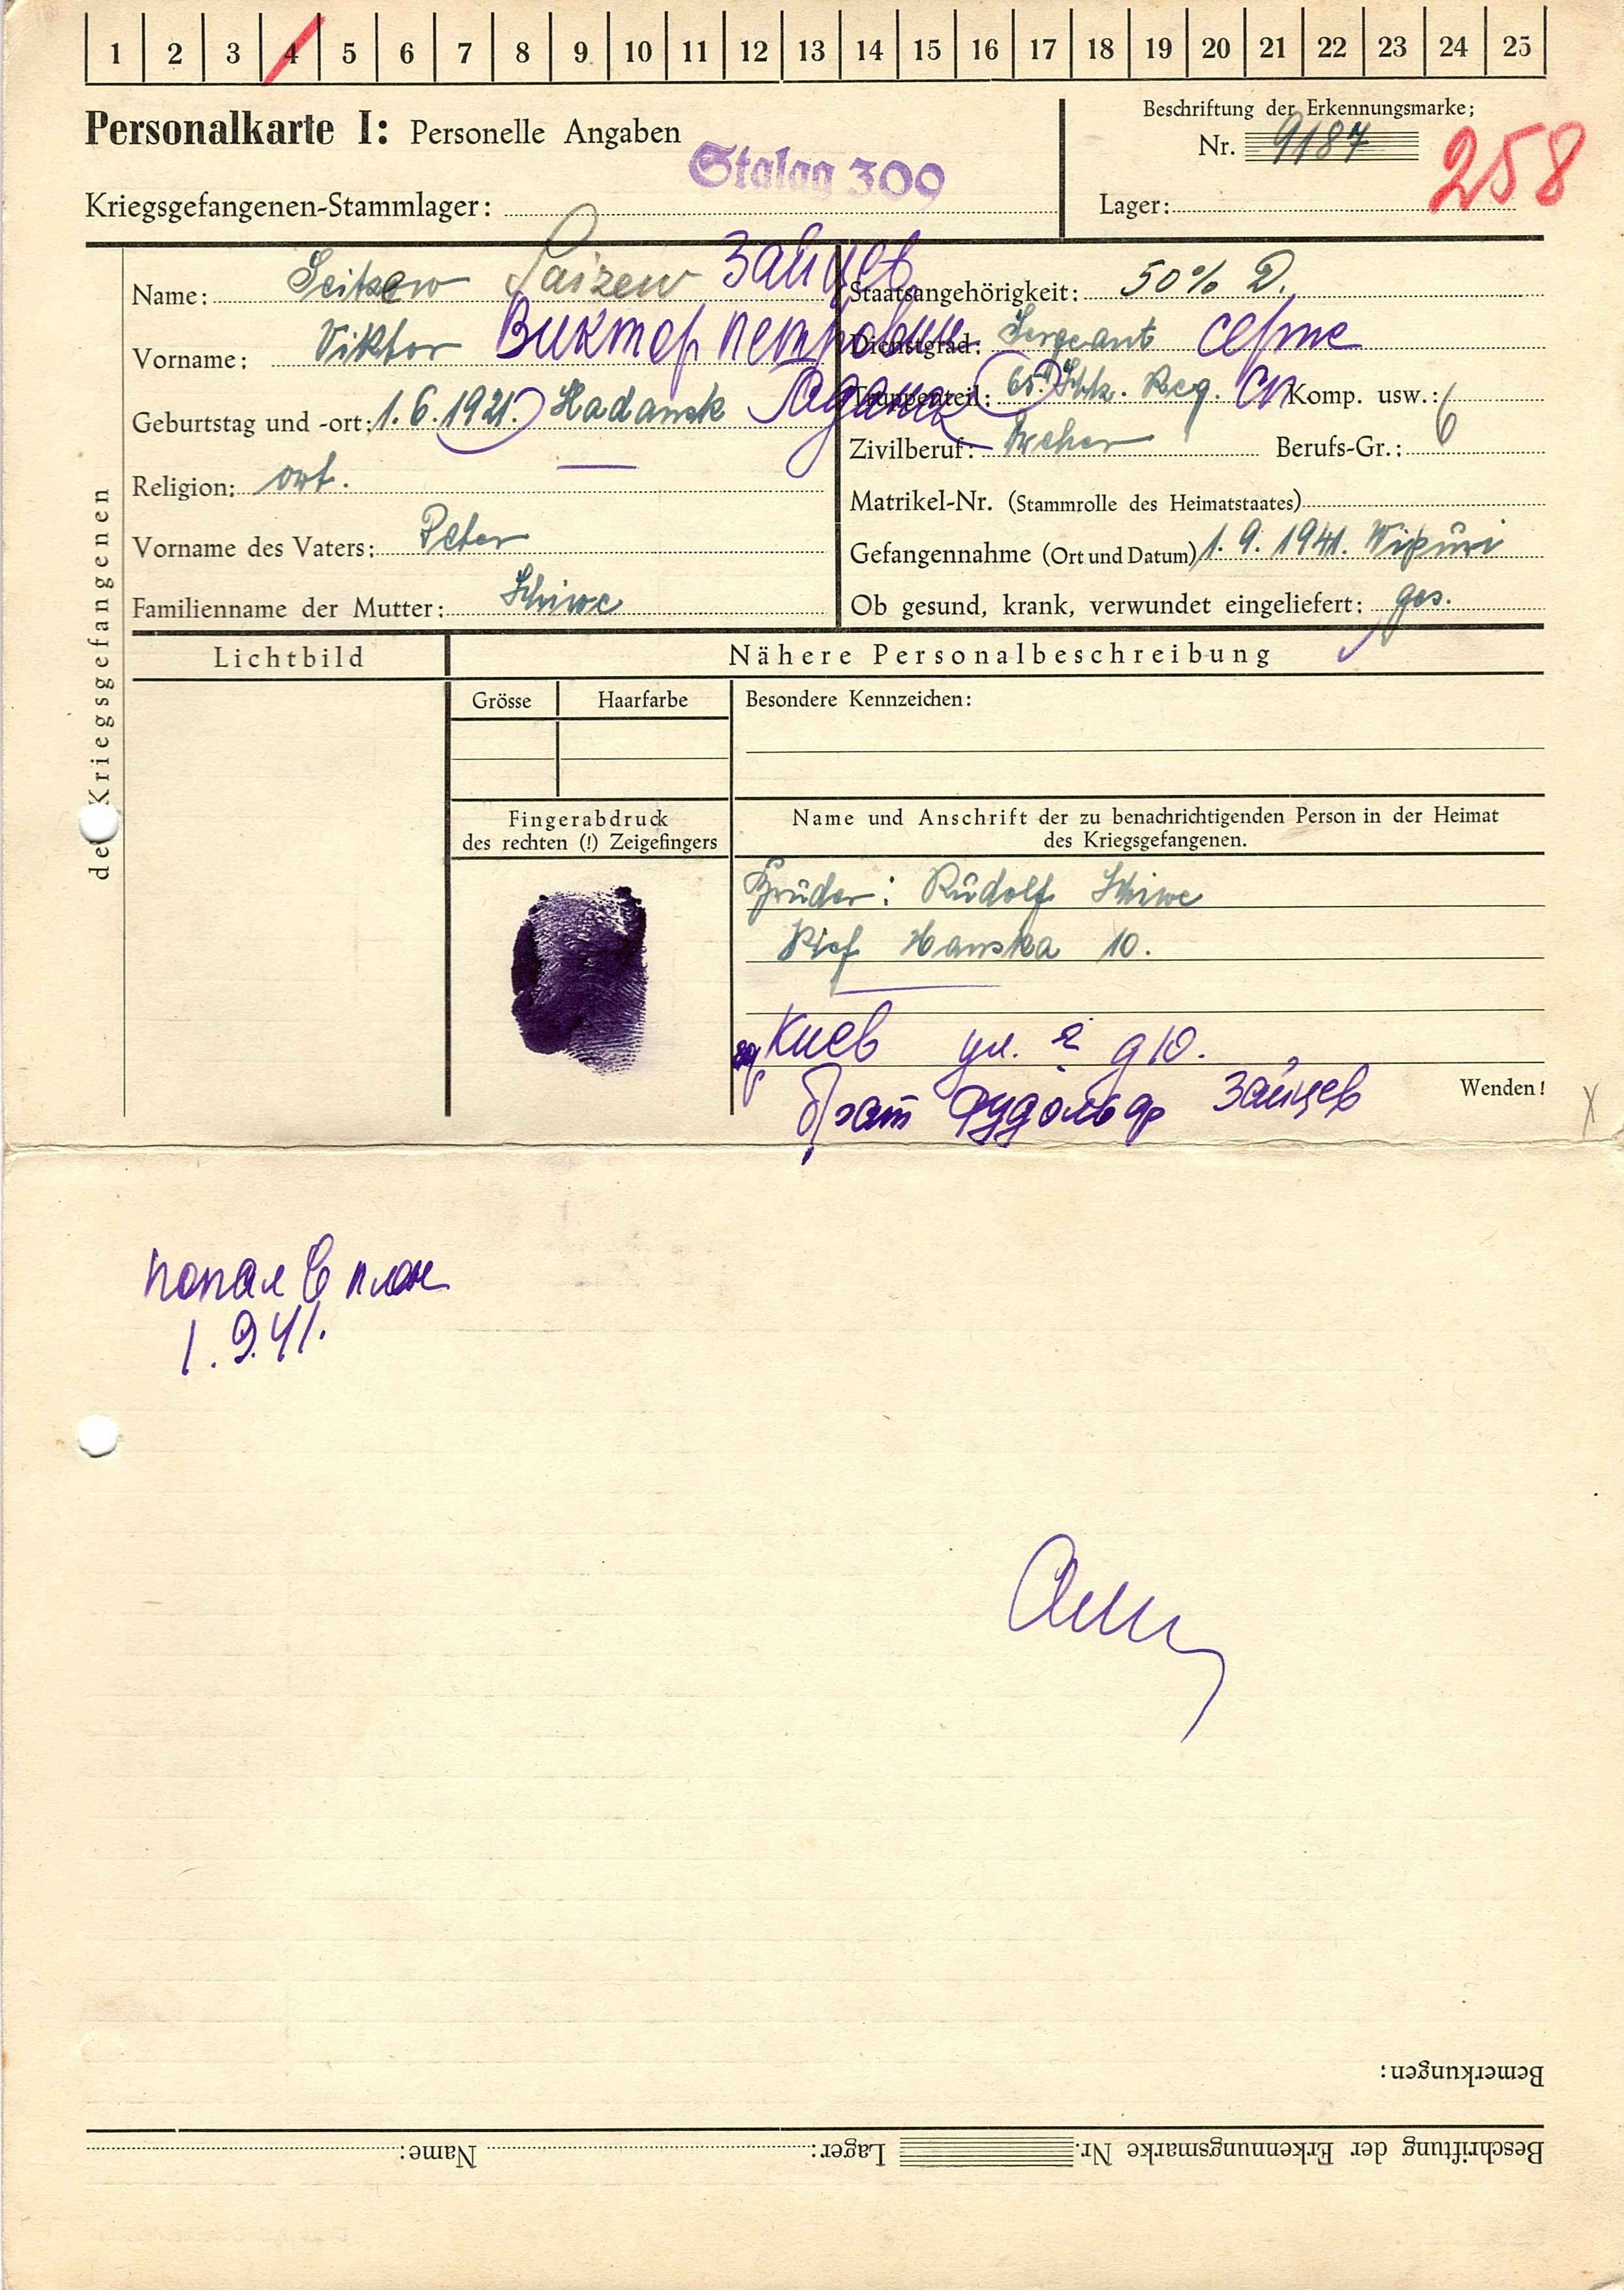 1 2 3 4 5 6 7 8 9 10 11 12 13 14 15 16 17 18 19 20 21 22 23 24 25
Personalkarte I: Personelle Angaben
Beschriftung der Erkennungsmarke:
Nr. 9187
258
Stalag 309
Kriegsgefangenen-Stammlager:
Lager:
des Kriegsgefangenen
Name: Seitzew Saizew Зайцев
Vorname: Viktor Виктор Петрович
Geburtstag und -ort: 1.6.1921. Hadansk
Religion: ort.
Vorname des Vaters: Peter
Familienname der Mutter: Schiwe
Staatsangehörigkeit: 50% D.
Dienstgrad: Sergeant серж
Truppenteil: 65. Schtz. Reg. сп Komp. usw.: 6
Zivilberuf: Dreher Berufs-Gr.:
Matrikel-Nr. (Stammrolle des Heimatstaates)
Gefangennahme (Ort und Datum) 1. 9. 1941. Wipuri
Ob gesund, krank, verwundet eingeliefert: ges.
Lichtbild
Nähere Personalbeschreibung
Grösse Haarfarbe
Besondere Kennzeichen:
Fingerabdruck
des rechten (!) Zeigefingers
Name und Anschrift der zu benachrichtigenden Person in der Heimat
des Kriegsgefangenen.
Bruder: Rudolf Schiwe
Kief Hanska 10.
Киев ул. д 10.
брат Рудольф Зайцев
Wenden!
попал в плен
1.9.41.
Bemerkungen:
Beschriftung der Erkennungsmarke Nr. Lager: Name: